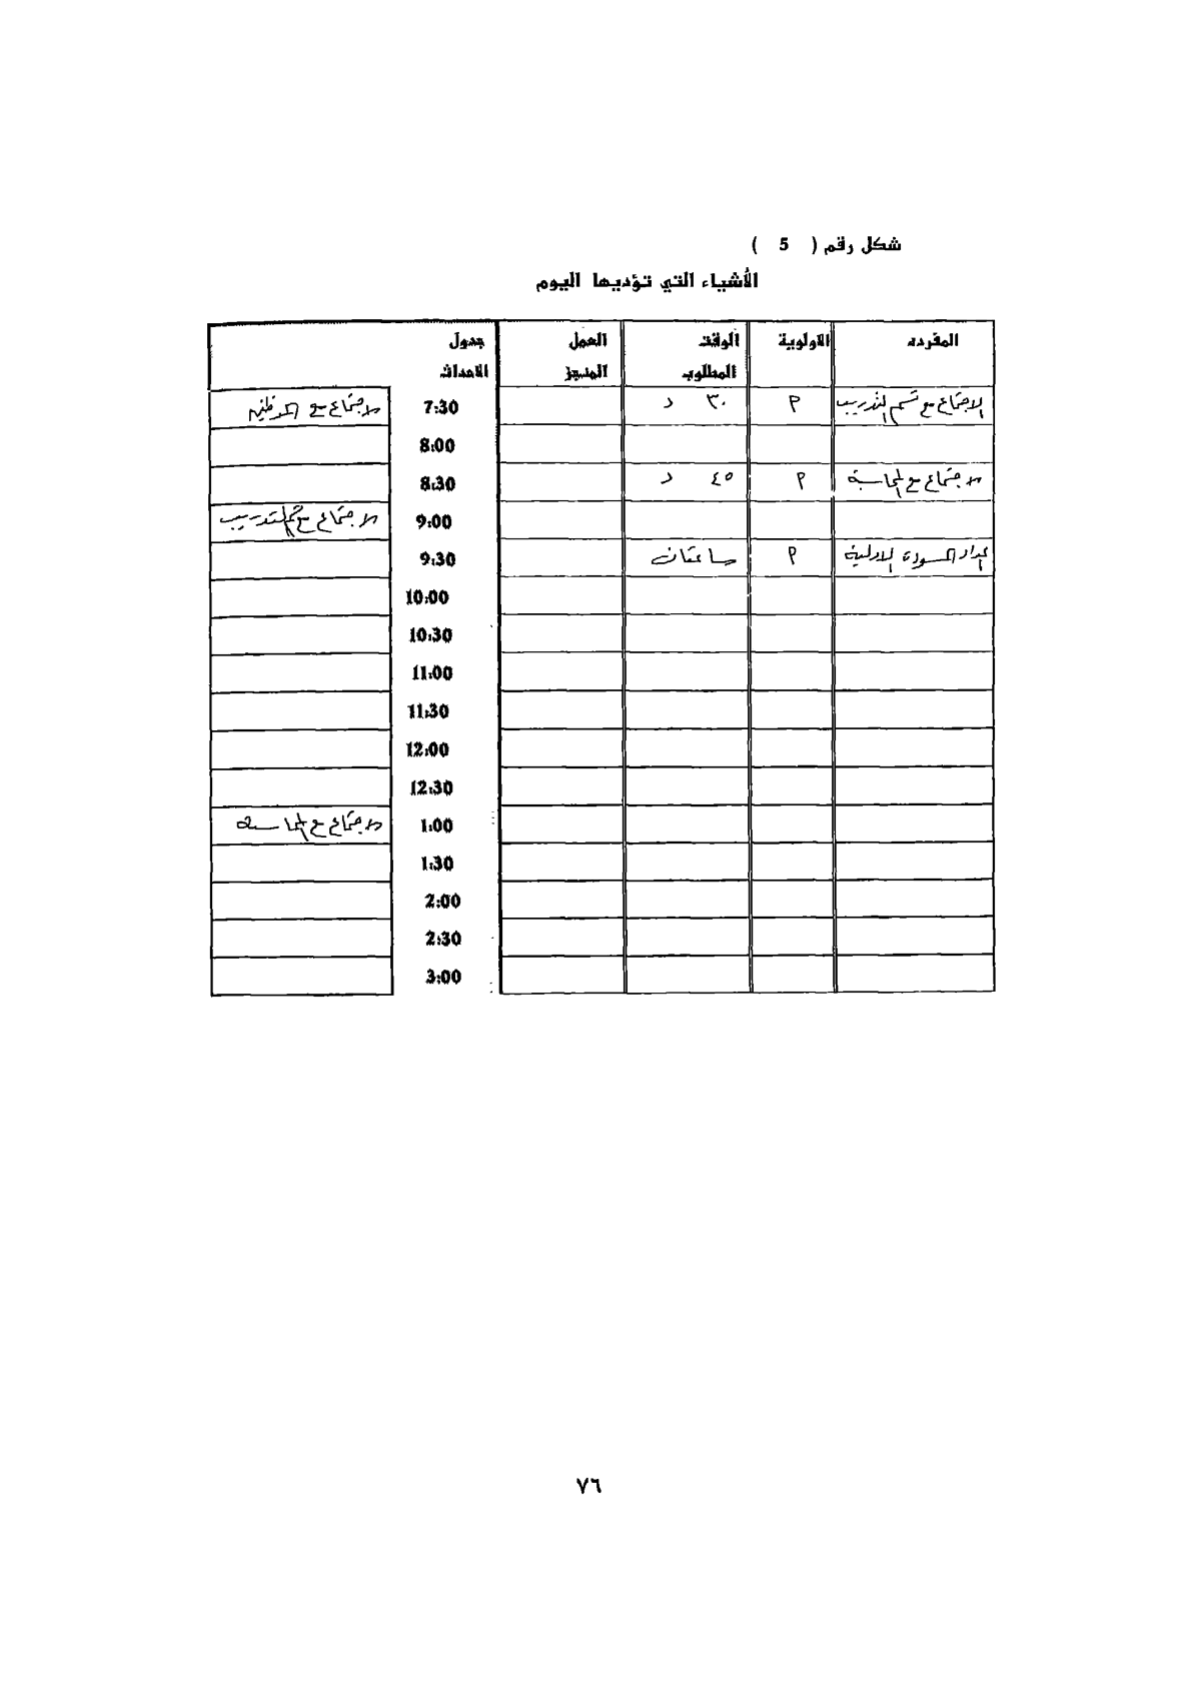 شكل رقم ( 5 )
الأشياء التي تؤديها اليوم
المفرده الاولوية الوقت المطلوب العمل المنجز جدول الاحداث
الاجتماع مع قسم التدريب م ٣٠ د 7:30 الاجتماع مع الموظفين
8:00
الاجتماع مع المحاسبة م ٤٥ د 8:30
9:00 الاجتماع مع قسم التدريب
اعداد المسودة الاولية م ساعتان 9:30
10:00
10:30
11:00
11:30
12:00
12:30
1:00 الاجتماع مع المحاسبه
1:30
2:00
2:30
3:00
٧٦